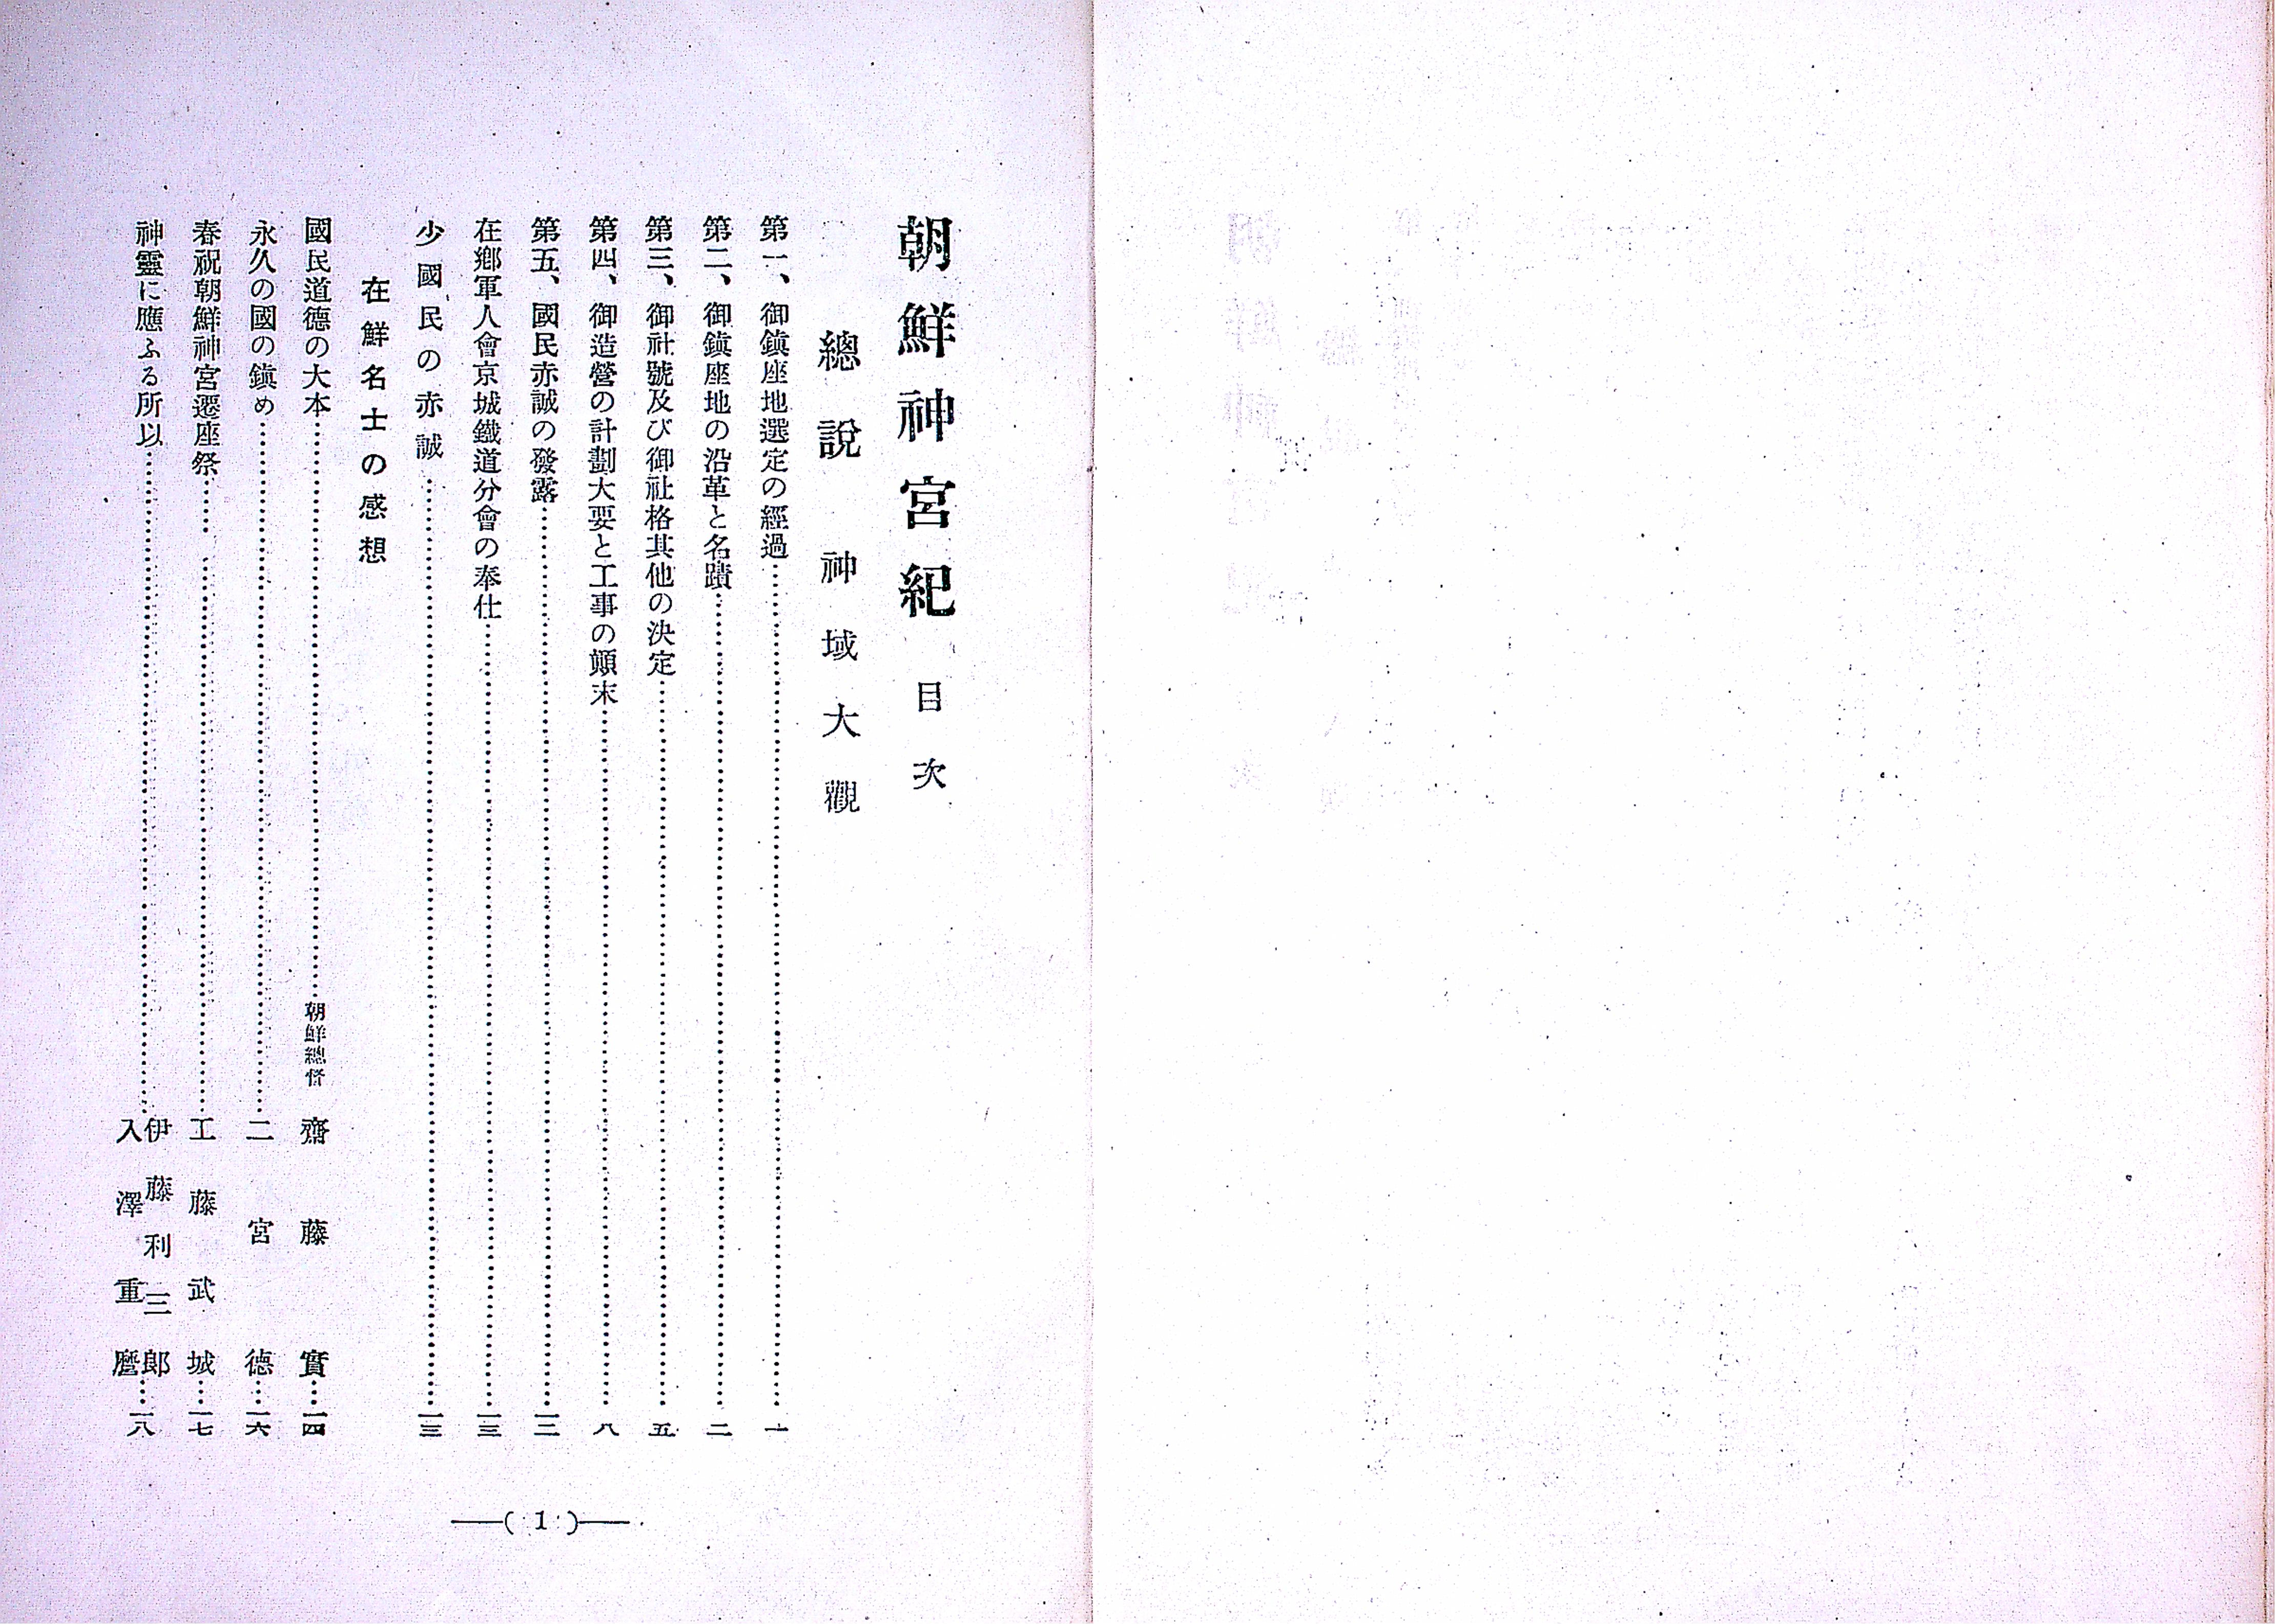 朝鮮神宮紀 目次
總說 神域大觀
第一、御鎭座地選定の經過……一
第二、御鎭座地の沿革と名蹟……二
第三、御社號及び御社格其他の決定……五
第四、御造營の計劃大要と工事の顚末……八
第五、國民赤誠の發露……三
在鄕軍人會京城鐵道分會の奉仕……一三
少國民の赤誠……一三
在鮮名士の感想
國民道德の大本……朝鮮總督 齋藤實……一四
永久の國の鎭め……二宮德……一六
春祝朝鮮神宮遷座祭……工藤武城……一七
神靈に應ふる所以……伊藤利三郎 入澤重麿……一八
——( 1 )——